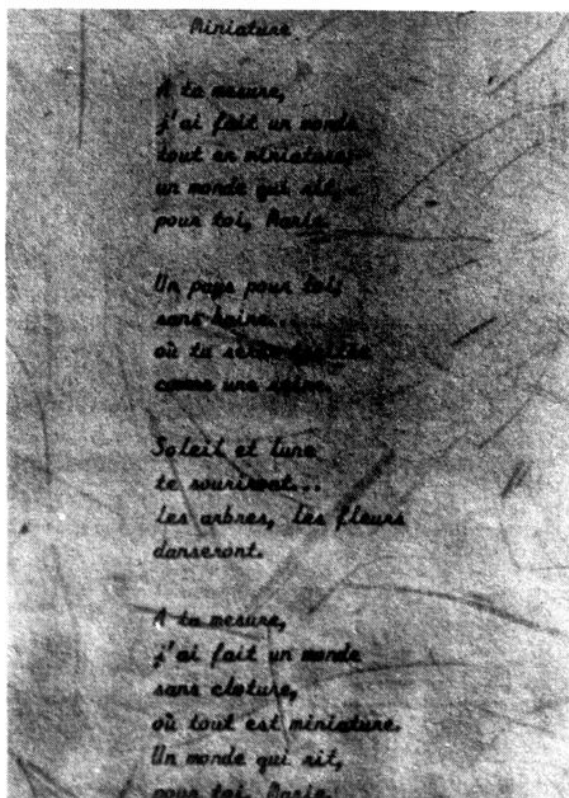 Miniature

A ta mesure,
j'ai fait un monde
tout en miniature;
un monde qui rit,
pour toi, Marie.

Un pays pour toi,
sans haine...
où tu seras traitée
comme une reine.

Soleil et lune
te souriront...
les arbres, les fleurs
danseront.

A ta mesure,
j'ai fait un monde
sans cloture,
où tout est miniature.
Un monde qui rit,
pour toi, Marie.